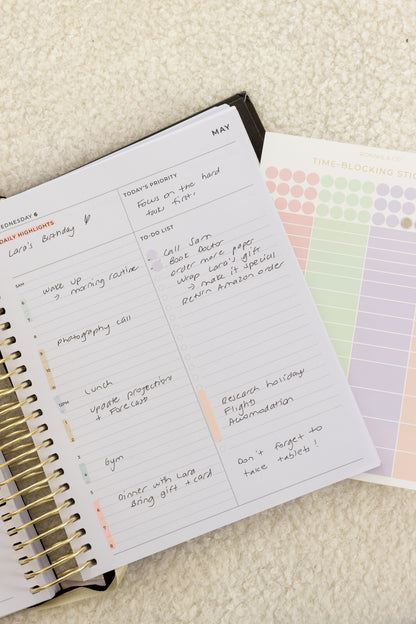 MAY
WEDNESDAY 6
DAILY HIGHLIGHTS
Lara's Birthday
TODAY'S PRIORITY
Focus on the hard
task first.
5AM
wake up
→ morning routine
photography call
10
12PM
Lunch
update projections
+ Forecast
Gym
Dinner with Lara
Bring gift + card
6
7
8
TO-DO LIST
Call Sam
Book Doctor
order more paper
Wrap Lara's gift
→ make it special
Return Amazon order
Research holiday
Flights
Accomodation
Don't forget to
take tablets!
TIME-BLOCKING STIC